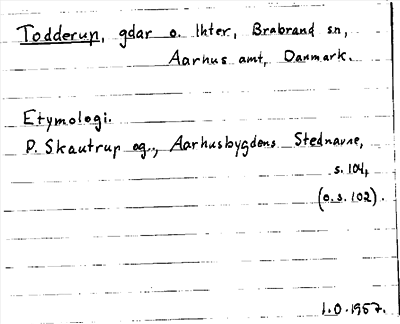 Todderup, gdar o. lhter, Brabrand sn,
Aarhus amt, Danmark.
Etymologi.
P. Skautrup og., Aarhusbygdens Stednavne,
s. 104,
(o.s. 102).
1.O.1957.